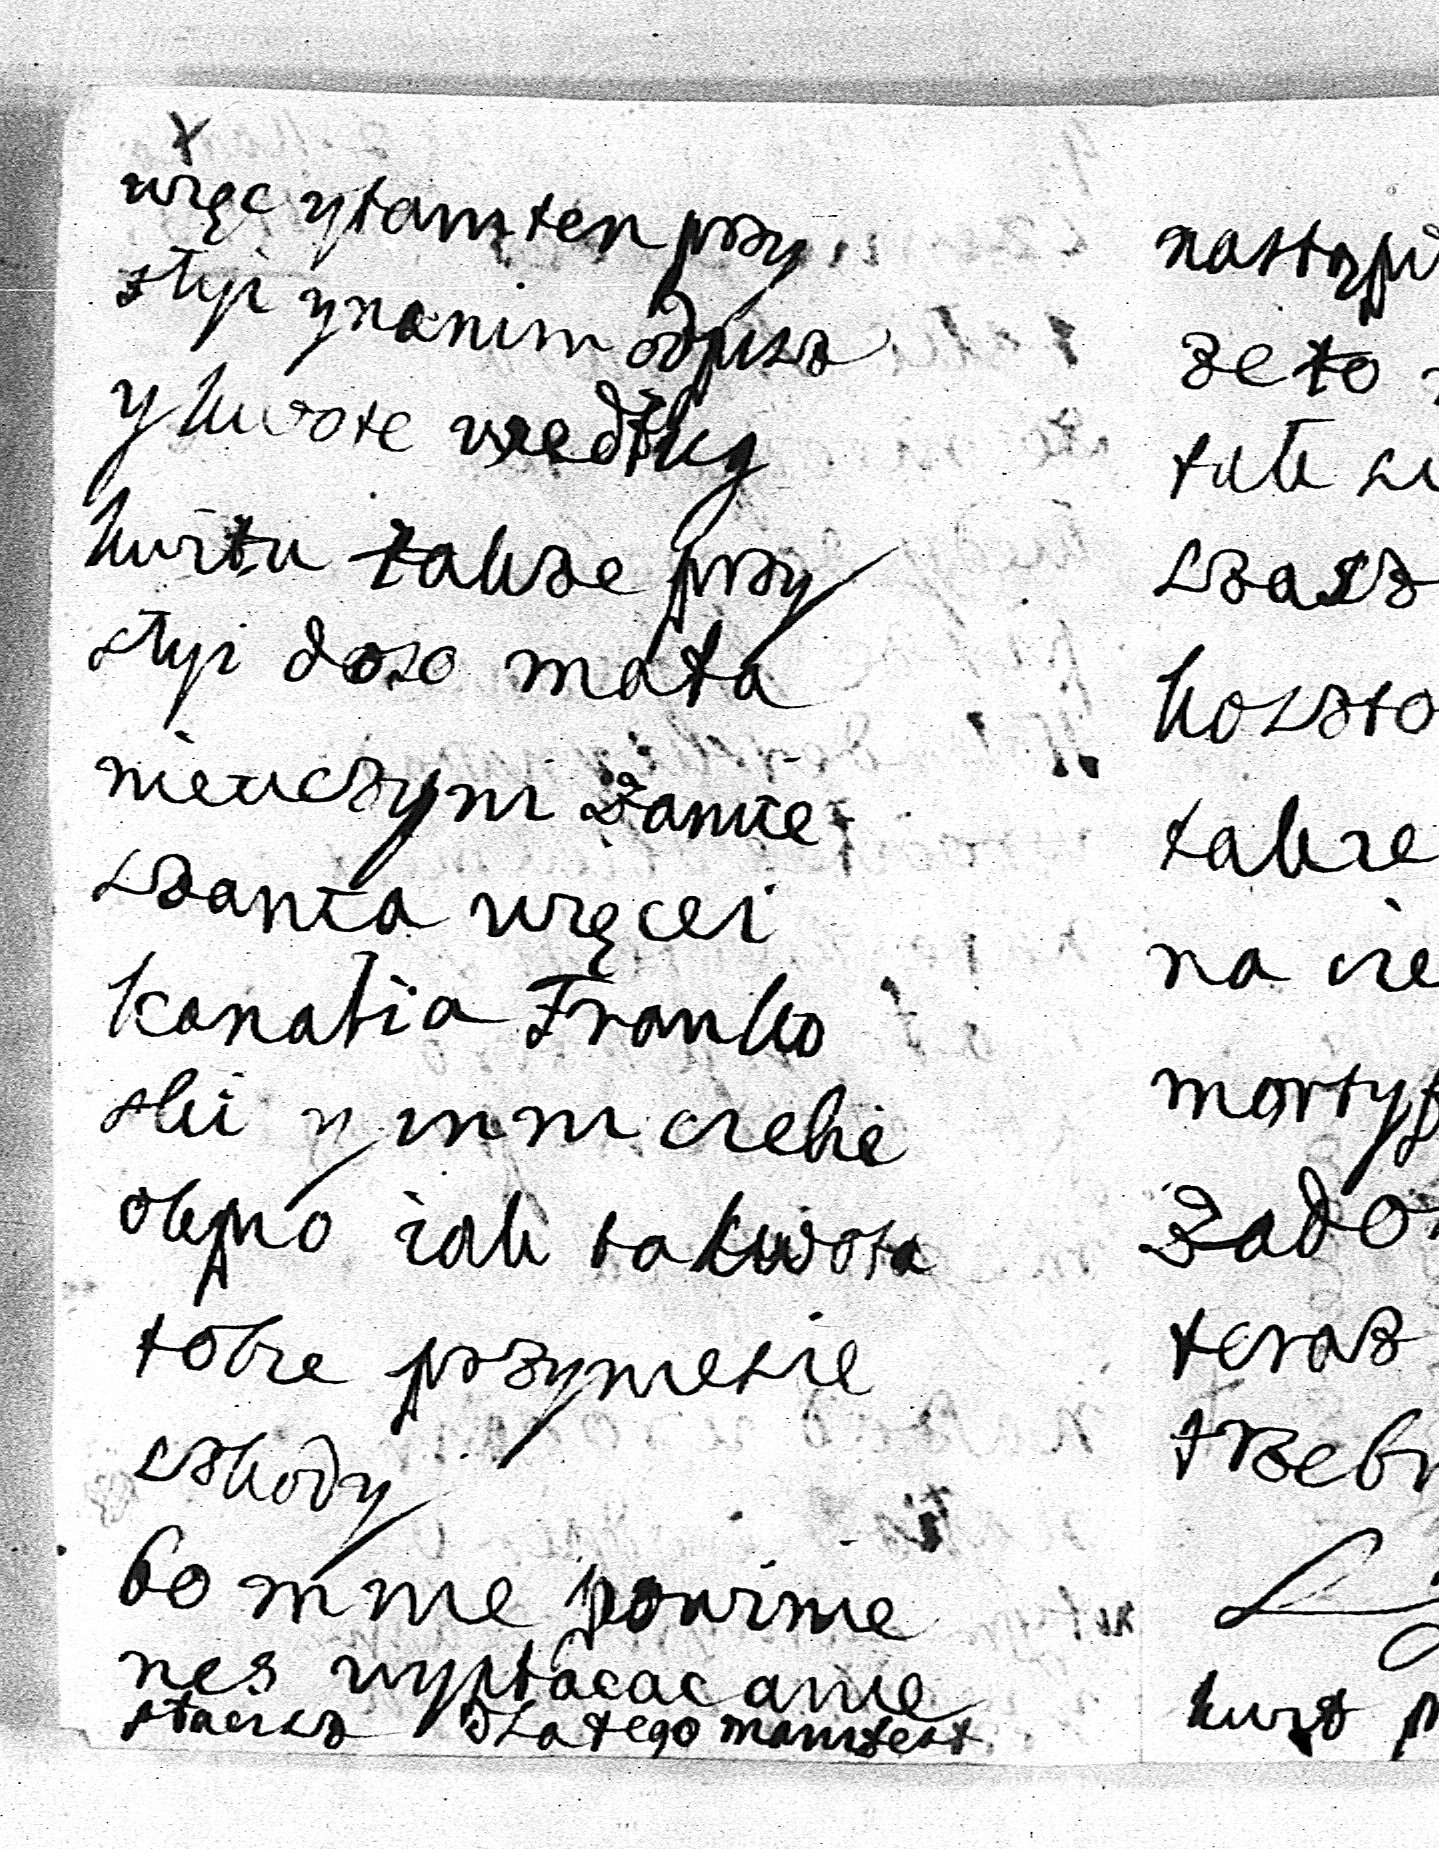 x
więc ytamten przy
słyi ynanim odpisz
y kwote według
kwitu także przy
słyi doso mata
nieuczyni Szanie
szanta więcei
kanalia Franko
ski y inni ciebie
olepio iak ta kwota
tobie przyniesie
szkody
bo mnie powinie
nes wypłacac anie
stawisz dlatego manifest
nastąpi
ze to
tak si
szasz
koszto
takze
na cie
mortyf
Zado
teraz
trzeb
kwit p